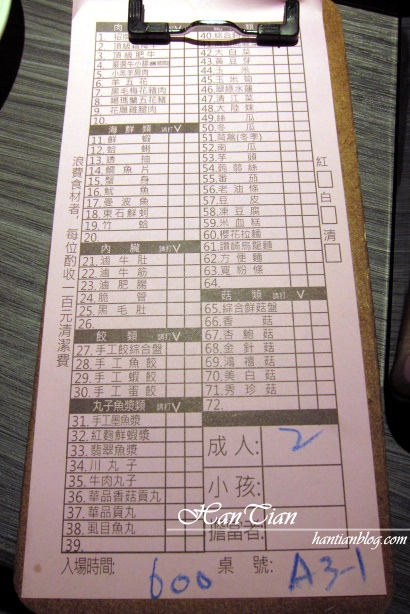 肉 類
1. 招
2. 頂級
3. 頂級肥牛
5. 小羔羊肩肉
6. 羊五花
7. 黑毛梅花豬肉
8. 嘿瑪蘭五花豬
9. 花雕雞腿肉
10.
海鮮類 請打V
11. 鮮蝦
12. 蛤蜊
13. 透抽
14. 鯛魚片
15. 蟹身
16. 魷魚
17. 曼波魚
18. 東石鮮蚵
19. 竹蛤
20.
內臟 請打V
21. 滷牛肚
22. 滷牛筋
23. 滷肥腸
24. 脆管
25. 黑毛肚
26.
餃類 請打V
27. 手工餃綜合盤
28. 手工魚餃
29. 手工蝦餃
30. 手工蛋餃
丸子魚漿類 請打V
31. 手工墨魚漿
32. 紅麴鮮蝦漿
33. 翡翠魚漿
34. 川丸子
35. 牛肉丸子
36. 華品香菇貢丸
37. 華品貢丸
38. 虱目魚丸
39.
40. 綜合
42. 大白菜
43. 黃豆芽
44. 玉米
45. 玉米筍
46. 翠綠水蓮
47. 清江菜
48. 大陸妹
49. 絲瓜
50. 冬瓜
51. 茼蒿(冬季)
52. 南瓜
53. 芋頭
54. 蒟蒻絲
55. 番茄
56. 老油條
57. 豆皮
58. 凍豆腐
59. 米血糕
60. 櫻花拉麵
61. 讚岐烏龍麵
62. 方便麵
63. 寬粉條
64.
菇類 請打V
65. 綜合鮮菇盤
66. 香菇
67. 杏鮑菇
68. 金針菇
69. 鴻禧菇
70. 美白菇
71. 秀珍菇
72.
成人: 2
小孩:
擔當者:
入場時間: 600 桌號: A3-1
浪費食材者,每位酌收一百元清潔費
紅
白
清
HanTian
hantianblog.com